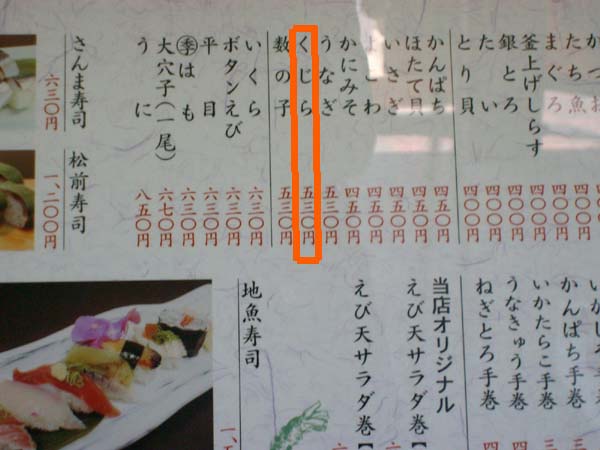 たち魚 四〇〇円
まぐろ 四〇〇円
釜上げしらす 四〇〇円
銀とろ 四〇〇円
たい 四〇〇円
とり貝 四〇〇円
かんぱち 四五〇円
ほたて貝 四五〇円
いさぎ 四五〇円
よこわ 四五〇円
かにみそ 四五〇円
うなぎ 五三〇円
くじら 五三〇円
数の子 五三〇円
いくら 六三〇円
ボタンえび 六三〇円
平目 六三〇円
㊝はも 六三〇円
大穴子(一尾) 六七〇円
うに 八五〇円
さんま寿司 六三〇円
松前寿司 一、二〇〇円
かんぱち手巻
いかたらこ手巻
うなきゅう手巻
ねぎとろ手巻
当店オリジナル
えび天サラダ巻【
えび天サラダ巻【
地魚寿司